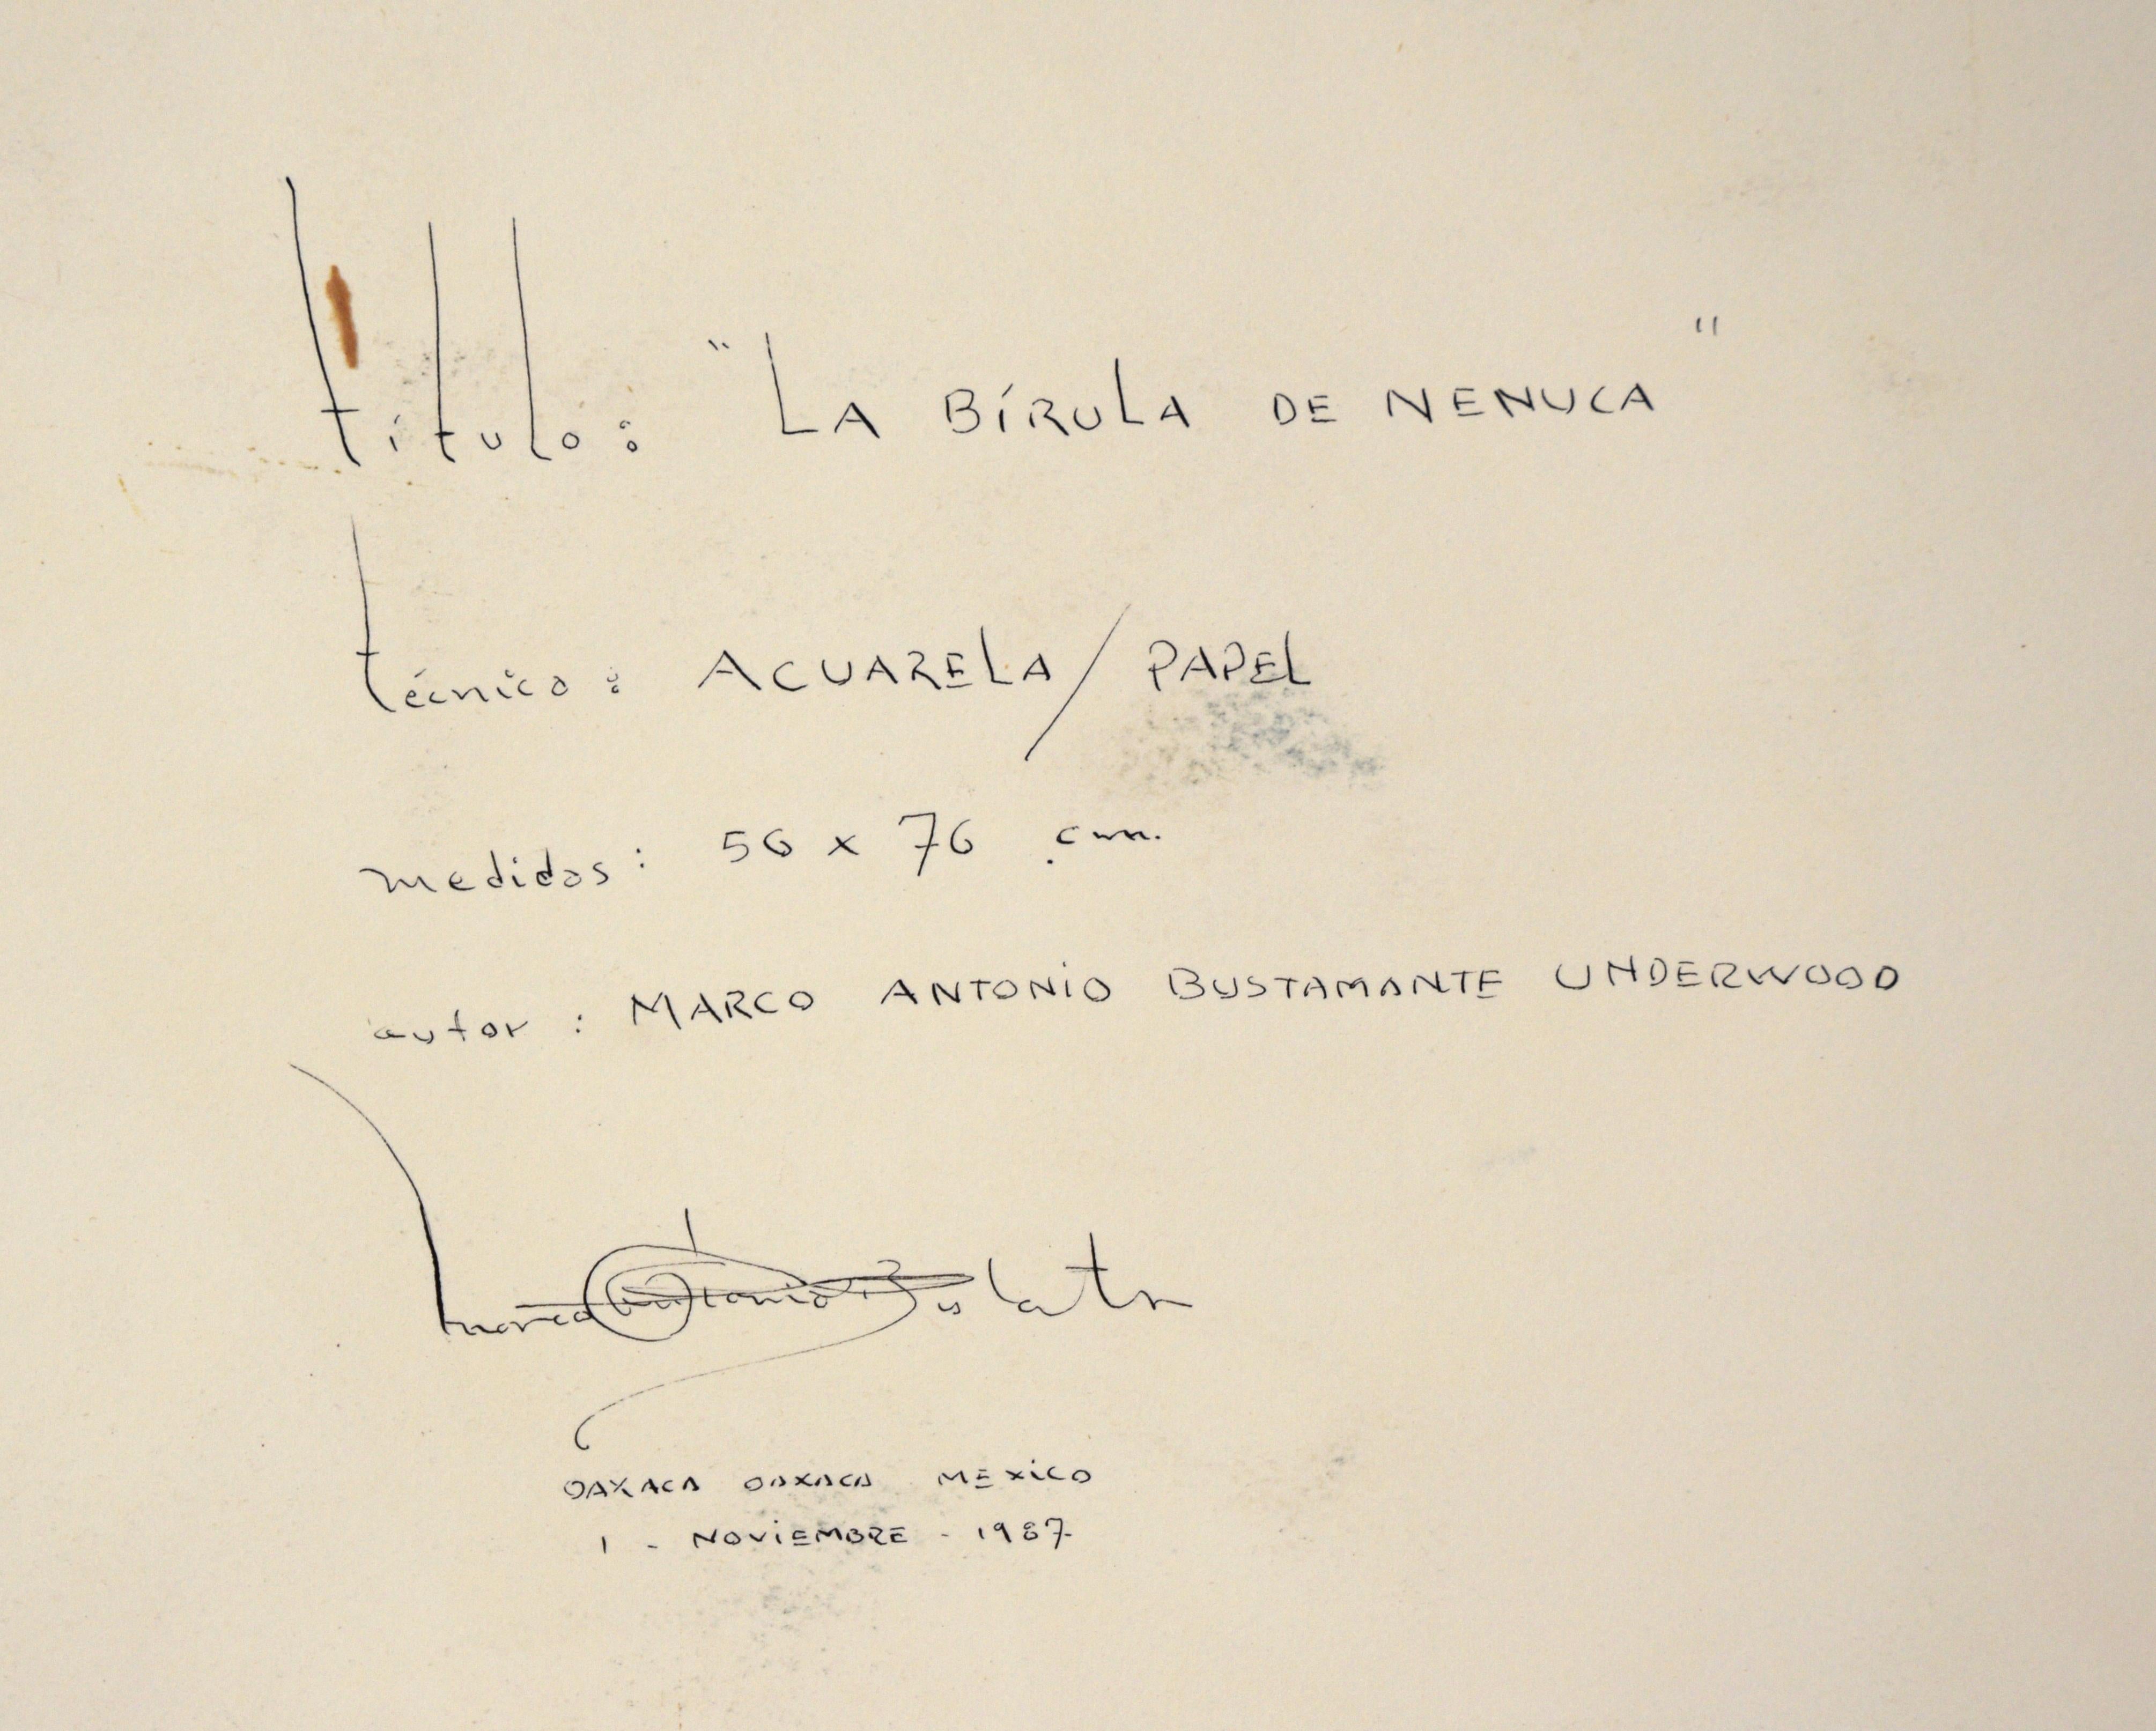 título: "LA BÍRULA DE NENUCA"
técnica: ACUARELA/PAPEL
medidas: 56 x 76 cm.
autor: MARCO ANTONIO BUSTAMANTE UNDERWOOD
marco antonio
OAXACA OAXACA MEXICO
1 - NOVIEMBRE - 1987